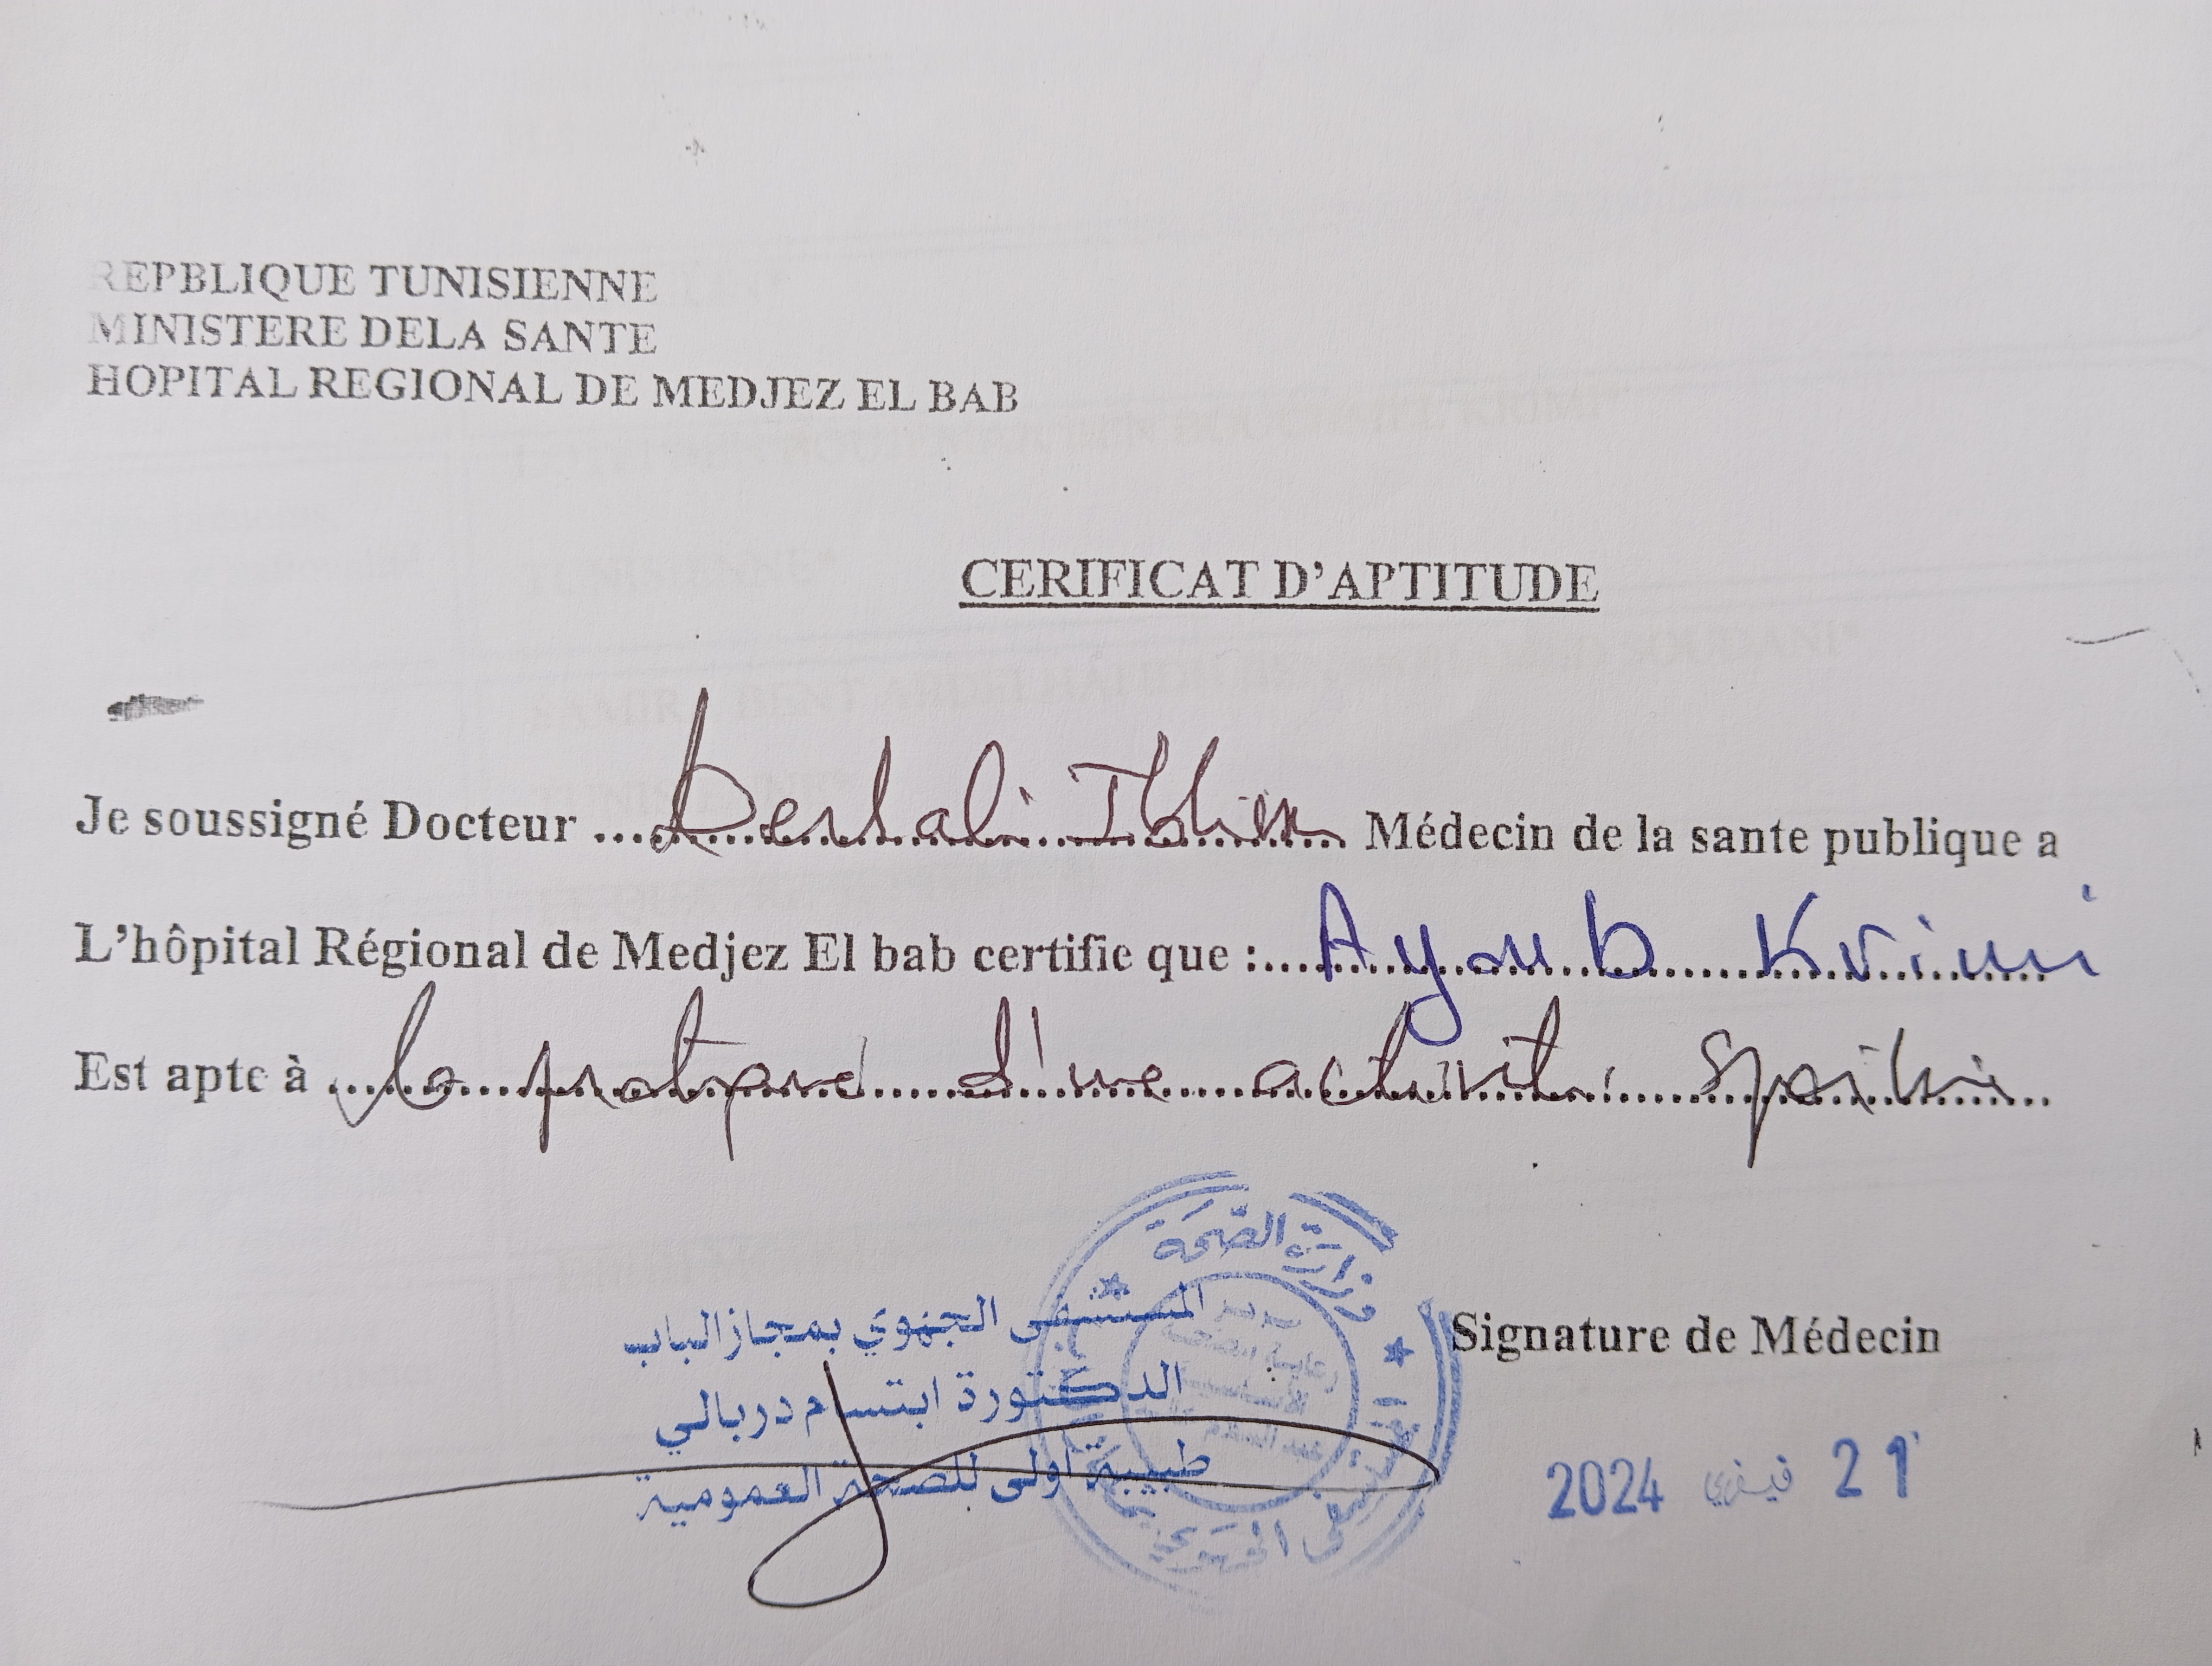 REPBLIQUE TUNISIENNE
MINISTERE DELA SANTE
HOPITAL REGIONAL DE MEDJEZ EL BAB
CERIFICAT D'APTITUDE
Je soussigné Docteur ... Derbali Ibtissem ... Médecin de la sante publique a
L'hôpital Régional de Medjez El bab certifie que :.... Ayoub Krimi
Est apte à ... la pratique d'une activité sportive ...
وزارة الصحة
المستشفى الجهوي بمجاز الباب
الدكتورة ابتسام دربالي
طبيبة أولى للصحة العمومية
المستشفى الجهوي
Signature de Médecin
21 فيفري 2024